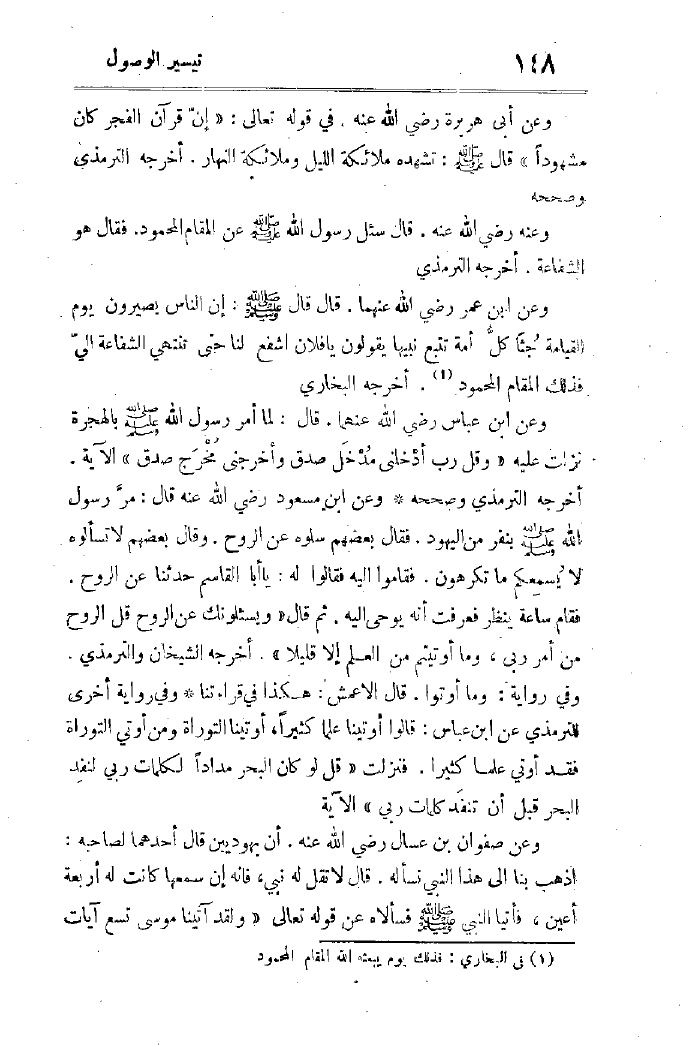 ١٤٨ تيسير الوصول
وعن أبى هريرة رضي الله عنه . في قوله تعالى : « إنّ قرآن الفجر كان
مشهوداً » قال ﷺ : تشهده ملائكة الليل وملائكة النهار . أخرجه الترمذي
وصححه
وعنه رضي الله عنه . قال سئل رسول الله ﷺ عن المقام المحمود. فقال هو
الشفاعة . أخرجه الترمذي
وعن ابن عمر رضي الله عنهما . قال قال ﷺ : إن الناس يصيرون يوم
القيامة جُثًا كلُّ أمة تتبع نبيها يقولون يافلان اشفع لنا حتى تنتهي الشفاعة اليّ
فذلك المقام المحمود (١) . أخرجه البخاري
وعن ابن عباس رضي الله عنهما . قال : لما أمر رسول الله ﷺ بالهجرة
نزات عليه « وقل رب أدْخلنى مُدْخَل صدق وأخرجنى مُخْرَج صدق » الآية .
أخرجه الترمذي وصححه * وعن ابن مسعود رضي الله عنه قال : مرَّ رسول
الله ﷺ بنفر من اليهود . فقال بعضهم سلوه عن الروح . وقال بعضهم لا تسألوه
لا يُسمعكم ما تكرهون . فقاموا اليه فقالوا له : ياأبا القاسم حدثنا عن الروح .
فقام ساعة ينظر فعرفت أنه يوحى اليه . ثم قال « ويسئلونك عن الروح قل الروح
من أمر ربى ، وما أوتيتم من العلم إلا قليلا » . أخرجه الشيخان والترمذي .
وفي رواية : وما أوتوا . قال الاعمش : هكذا في قراءتنا * وفي رواية أخرى
للترمذي عن ابن عباس : قالوا أوتينا علما كثيراً، أوتينا التوراة ومن أوتي التوراة
فقد أوتي علما كثيرا . فنزلت « قل لو كان البحر مداداً لكلمات ربي لنفد
البحر قبل أن تنفَد كلمات ربي » الآية
وعن صفوان بن عسال رضي الله عنه . أن يهوديين قال أحدهما لصاحبه :
اذهب بنا الى هذا النبي نسأله . قال لا تقل له نبي، فانه إن سمعها كانت له أربعة
أعين ، فأتيا النبي ﷺ فسألاه عن قوله تعالى « ولقد آتينا موسى تسع آيات
(١) فى البخاري : فذلك يوم يبعثه الله المقام المحمود